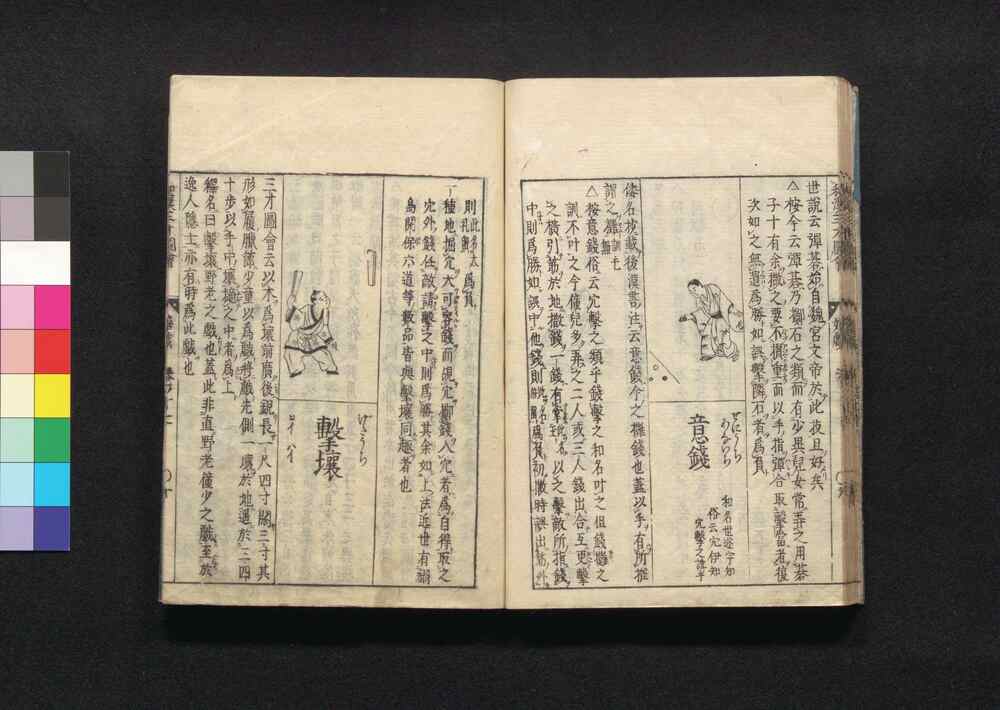 世說云彈碁始自魏宮文帝於此技且好矣
△按今云彈碁乃擲石之類而有少異兒女常弄之用碁
子十有余撒之要不擲重而以手指彈合取擊當者復
次如之無遺爲勝如誤擊隣石者爲負
意錢
ぜにうち
あなうち
和名世迩宇知
俗云穴伊知
穴擊之訛乎
倭名抄載後漢書注云意錢今之攤錢也蓋以手有所推
謂之攤
△按意錢俗云穴擊之類乎錢擊之和名叶之但錢攤之
訓不叶之今僮兒多弄之二人或三人錢出合互更擊
之橫引筯於地撒錢一錢有
以之擊敵所指錢
中則爲勝如誤中他錢則
爲負初撒時誤出筋外
則
爲負
一種地掘穴大可容錢而覘穴擲錢入穴者爲自得取之
穴外錢任敵請擊之中則爲勝其余如上法近世有
六道等數品皆與擊壤同趣者也
擊壤
三才圖會云以木爲壤前廣後銳長一尺四寸闊三寸其
形如履臘節少童以爲戲將戲先側一壤於地遇於三四
十步以手中壤擿之中者爲上
釋名曰擊壤野老之戲也蓋此非直野老僮少之戲至於
逸人隱士亦有時爲此戲也